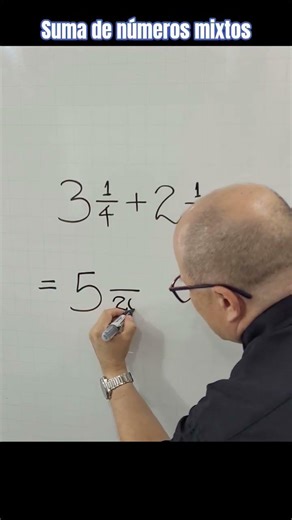 Suma de números mixtos
3 1/4 + 2 1
= 5